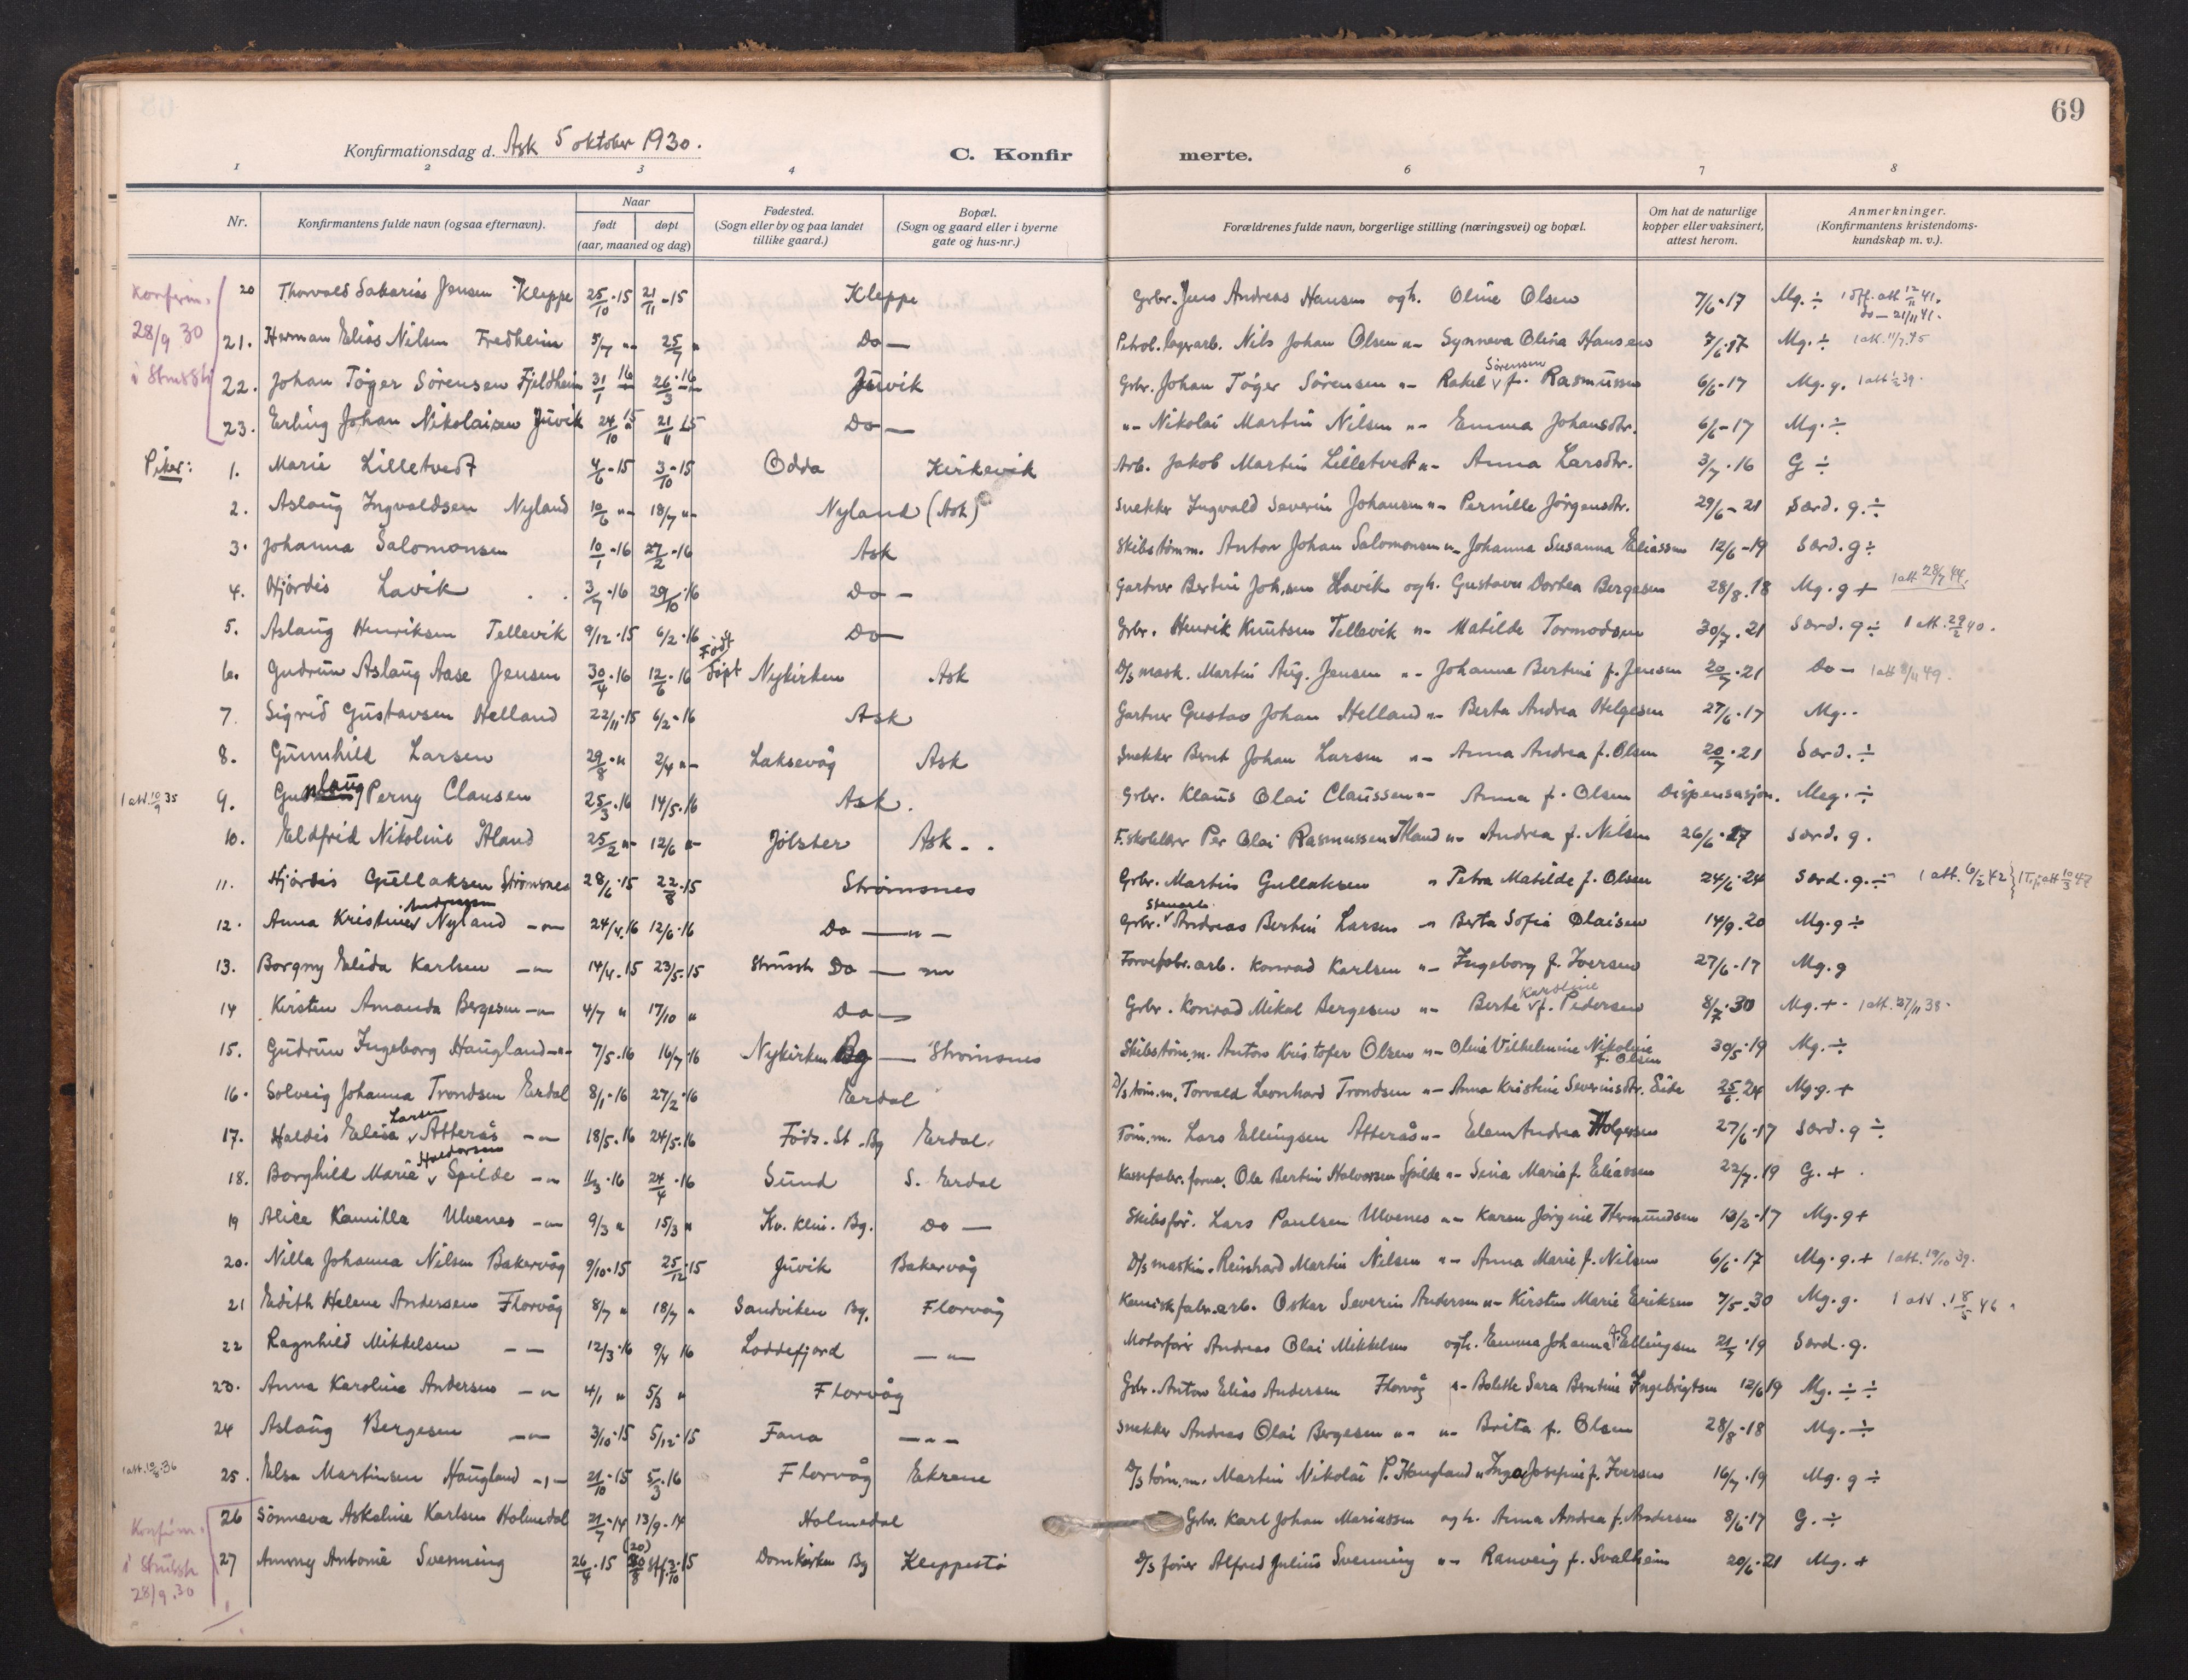 69
Konfirmationsdag d. Ask 5 oktober 1930.
C. Konfirmerte.
1 2 3 4 6 7 8
Nr. Konfirmantens fulde navn (ogsaa efternavn). Naar født døpt (aar, maaned og dag) Fødested. (Sogn eller by og paa landet tillike gaard.) Bopæl. (Sogn og gaard eller i byerne gate og hus-nr.) Forældrenes fulde navn, borgerlige stilling (næringsvei) og bopæl. Om hat de naturlige kopper eller vaksinert, attest herom. Anmerkninger. (Konfirmantens kristendomskundskap m. v.).
Konfirm. 28/9 30 i
20 Thorvald Sakarias Jensen Kleppe 25/10·15 21/11-15 Kleppe Grbr. Jens Andreas Hansen ogh. Oline Olsen 7/6·17 Mg. ÷ 1 off. att 12/11 41. do — 21/11 41.
21. Herman Elias Nilsen Fredheim 5/7 „- 25/7 „ Do — Petrol. lagerarb. Nils Johan Olsen „- Synneva Olina Hansen 7/6·17 Mg. ÷ 1 att. 11/7.45
22. Johan Tøger Sørensen Fjeldheim 31/1 16 26/3·16 Juvik Grbr. Johan Tøger Sørensen „- Rakel Sørensen f. Rasmussen 6/6-17 Mg. g. 1 att 1/2 39.
23. Erling Johan Nikolaisen Juvik 24/10 15 21/11 15 Do — „- Nikolai Martin Nilsen „- Emma Johansdtr. 6/6-17 Mg. ÷
Piker: 1. Marie Lilletvedt 4/6-15 3/10-15 Odda Kirkevik Arb. Jakob Martin Lilletvedt „- Anna Larsdtr. 3/7·16 G ÷
2. Aslaug Ingvaldsen Nyland 10/6 „- 18/7 „- Nyland (Ask) Snekker Ingvald Severin Johansen „- Pernille Jörgensdtr. 29/6-21 Særd. g. ÷
3. Johanna Salomonsen 10/1·16 27/2·16 Ask Skibstømm. Anton Johan Salomonsen „- Johanna Susanna Eliassen 12/6-19 Særd. g ÷
4. Hjördis Lavik 3/7·16 29/10·16 Do — Gartner Bertin Joh.sen Havik ogh. Gustava Dortea Bergesen 28/8.18 Mg. g + 1 att. 28/7 44.
5. Aslaug Henriksen Tellevik 9/12·15 6/2·16 Do — Grbr. Henrik Knutsen Tellevik „- Matilde Tormodsen 30/7.21 Særd. g ÷ 1 att. 29/2 40.
6. Gudrun Aslaug Aase Jensen 30/4·16 12/6·16 Født Døpt Nykirken Ask D/s mask. Martin Aug. Jensen „- Johanne Bertine f. Jensen 20/7·21 Do — 1 att 8/11 49.
7. Sigrid Gustavsen Helland 22/11·15 6/2-16 Ask Gartner Gustav Johan Helland „- Berta Andrea Helgesen 27/6·17 Mg..
8. Gunnhild Larsen 29/8·„ 2/4 „- Laksevåg Ask Snekker Bernt Johan Larsen „- Anna Andrea f. Olsen 20/7·21 Særd. ÷
1 att. 10/9 35 9. Gunlaug Perny Clausen 25/3·16 14/5·16 Ask. Grbr. Klaus Olai Claussen „- Anna f. Olsen Dispensasjon. Meg. ÷
10. Eldfrid Nikoline Åland 25/2 „- 12/6 „- Jölster Ask F. skolelærer Per Olai Rasmussen Åland „- Andrea f. Nilsen 26/6·27 Særd. g.
11. Hjördis Gullaksen Strømsnes 28/6·15 22/8·15 Strømsnes Grbr. Martin Gullaksen „ Petra Matilde f. Olsen 24/6·24 Særd. g. ÷ 1 att. 6/2 42
12. Anna Kristine Andreasen Nyland —„— 24/4.16 12/6·16 Do —„— Grbr. Andreas Bertin Larsen „ Berta Sofia Olaisen 14/9.20 Mg. g ÷
13. Borgny Elida Karlsen —„ 14/4.15 23/5.15 Do — „ arb. Konrad Karlsen „- Ingeborg f. Iversen 27/6-17 Mg. g
14 Kirsten Amanda Bergesen —„ 4/7 „ 17/10 „ Do — Grbr. Konrad Mikal Bergesen „- Berte Karoline f. Pedersen 8/7.30 Mg. + 1 att. 27/11 38
15. Gudrun Ingeborg Haugland —„— 7/5.16 16/7·16 Nykirken Bg — Strømsnes Skibstøm.m. Anton Kristofer Olsen „- Oline Vilhelmine Nikoline f. Olsen 30/5·19 Mg. ÷
16. Solveig Johanna Trondsen Erdal 8/1·16 27/2·16 Erdal D/s tøm.m. Torvald Leonhard Trondsen „- Anna Kristine Severinsdtr. Eide 25/6.24 Mg. g. +
17. Haldis Elisa Larsen Atterås —„ 18/5.16 24/5.16 Føds. St. Bg Erdal. Tøm.m. Lars Ellingsen Atterås „- Elen Andrea Holgersen 27/6·17 Særd. g ÷
18. Borghild Marie Haldorsen Spilde —„ 11/3·16 24/4·16 Sund S. Erdal Kassefabr. Ole Bertin Halvorsen Spilde „- Sina Marie f. Eliassen 22/7.19 G. +
19 Alice Kamilla Ulvenes —„ 9/3 „ 15/3 „ Kv. klin. Bg. Do — Skibsfør. Lars Paulsen Ulvenes „- Karen Jørgine Hermundsen 13/2-17 Mg. g +
20. Nilla Johanna Nilsen Bakervåg 9/10·15 25/12·15 Juvik Bakervåg D/s maskin. Reinhard Martin Nilsen „- Anna Marie f. Nilsen 6/6·17 Mg. g. + 1 att. 19/10 39.
21 Edith Helene Andersen Florvåg 8/7 „ 18/7 „ Sandviken Bg. Florvåg Kemisk fabr.arb. Oskar Severin Andersen „- Kirsten Marie Eriksen 7/5.30 Mg. g. 1 att. 18/5 46
22 Ragnhild Mikkelsen —— 12/3·16 9/4 16 Loddefjord —„— Motorfører Andreas Olai Mikkelsen ogh. Emma Johanna f. Ellingsen 21/7·19 Særd. g.
23. Anna Karoline Andersen —„ 4/1 „ 5/3 „ Florvåg Grbr. Anton Elias Andersen Florvåg „- Bolette Sara Berntine Ingebrigtsen 12/6 19 Mg. ÷ ÷
24 Aslaug Bergesen —„— 3/10·15 5/12·15 Fana —„— Snekker Andreas Olai Bergesen „- „- Brita f. Olsen 28/8·18 Mg. ÷
25. Elsa Martinsen Haugland —„— 21/10·15 5/3·16 Florvåg Ekrene D/s tøm.m. Martin Nikolai P. Haugland „ Inga Josefine f. Iversen 16/7·19 Mg. g ÷
Konfirm. i 28/9.30
26 Sönneva Askeline Karlsen Holmedal 21/7·14 13/9·14 Holmedal Grbr. Karl Johan Mariussen ogh. Anna Andrea f. Andersen 8/6·17 G. ÷
27 Antonie Svenning 26/4·15 (20) Domkirken Bg Kleppestø D/s fører Alfred Julius Svenning „- Ranveig f. Svalheim 20/6·21 Mg. +